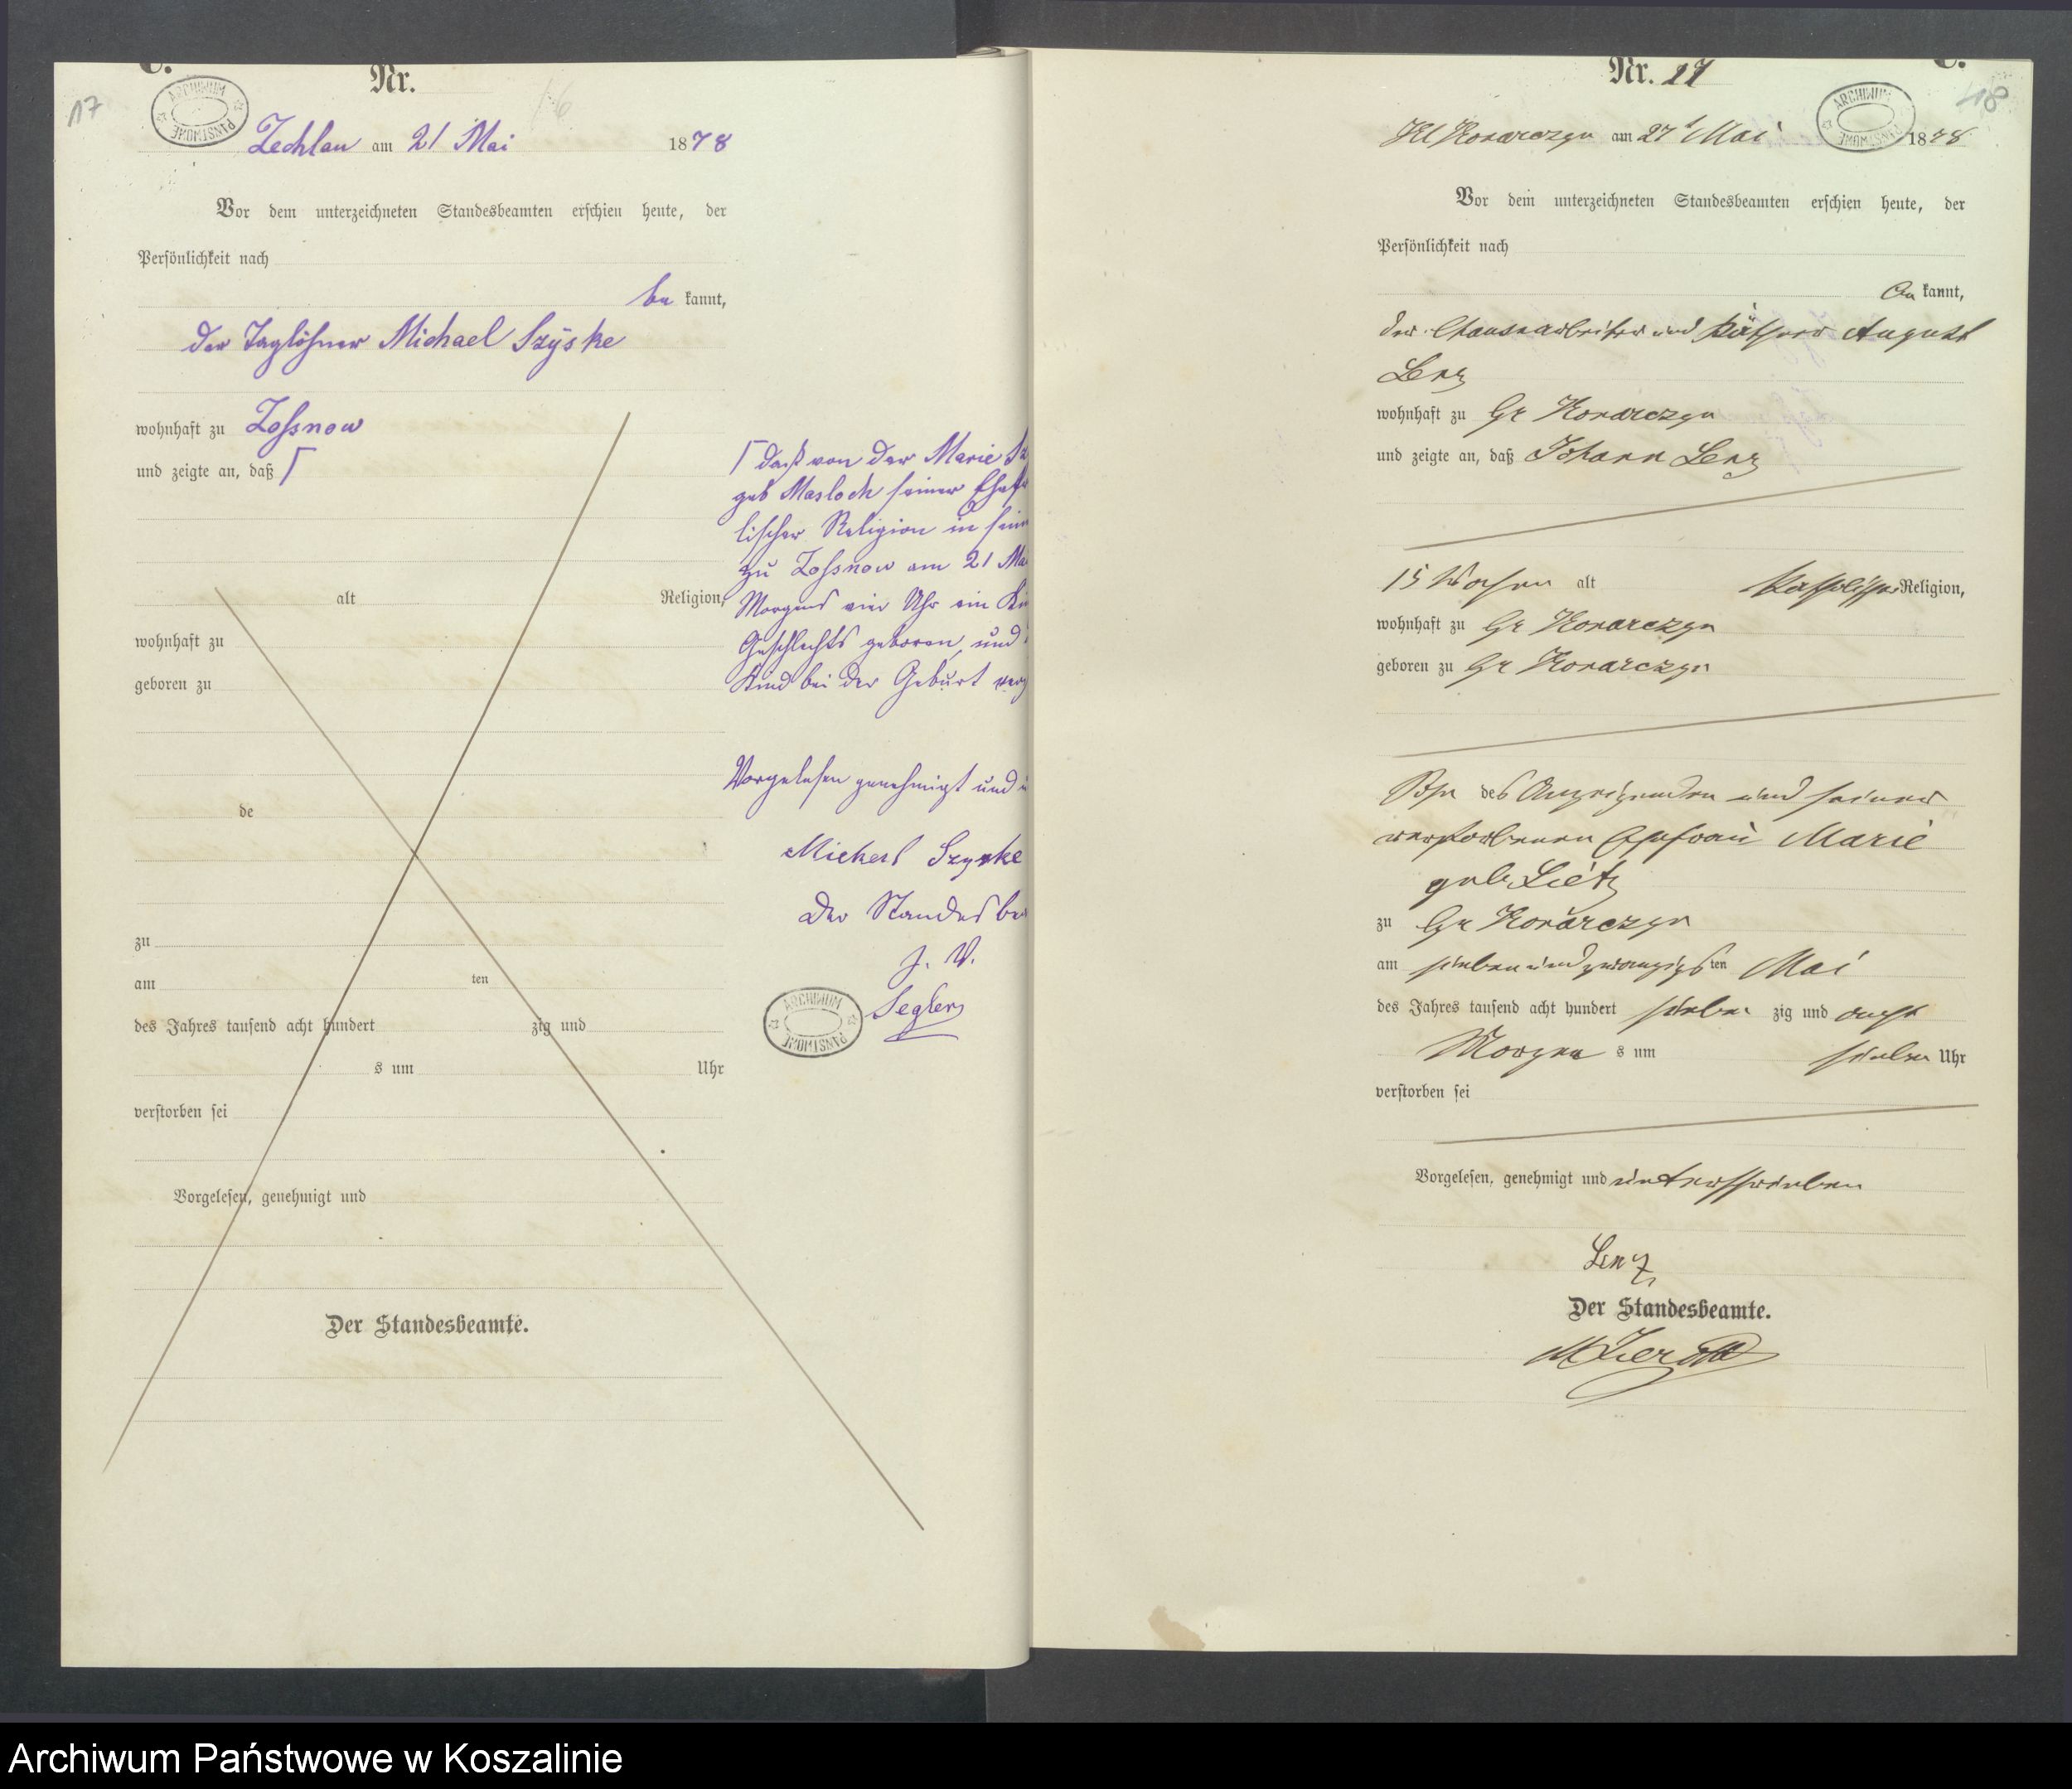 17
Nr.
16
ARCHIWUM PAŃSTWOWE
Zechlau am 21 Mai 1878
Vor dem unterzeichneten Standesbeamten erschien heute, der
Persönlichkeit nach
be kannt,
der Taglöhner Michael Szyske
wohnhaft zu Zossnow
und zeigte an, daß
alt Religion,
wohnhaft zu
geboren zu
de
zu
am ten
des Jahres tausend acht hundert zig und
s um Uhr
verstorben sei
Vorgelesen, genehmigt und
Der Standesbeamte.
daß von der Marie Sz
geb Masloch seiner Ehefr
lischer Religion in sein
zu Zossnow am 21 Mai
Morgens vier Uhr ein Ki
Geschlechts geboren, und
Kind bei der Geburt ver
Vorgelesen genehmigt und u
Michael Szyske
Der Standesbea
J. V.
Seglers
ARCHIWUM PAŃSTWOWE
Nr. 17
18
ARCHIWUM PAŃSTWOWE
Kl Konarczyn am 27 t Mai 1878
Vor dem unterzeichneten Standesbeamten erschien heute, der
Persönlichkeit nach
be kannt,
der Chausseearbeiter und Käthner August
Lenz
wohnhaft zu Gr Konarczyn
und zeigte an, daß Johann Lenz
15 Wochen alt katholischer Religion,
wohnhaft zu Gr Konarczyn
geboren zu Gr Konarczyn
Sohn des Anzeigenden und seiner
verstorbenen Ehefrau Marie
geb. Lietz
zu Gr Konarczyn
am siebenundzwanzigsten Mai
des Jahres tausend acht hundert sieben zig und acht
Morgen s um sieben Uhr
verstorben sei
Vorgelesen, genehmigt und unterschrieben
Lenz
Der Standesbeamte.
Archiwum Państwowe w Koszalinie